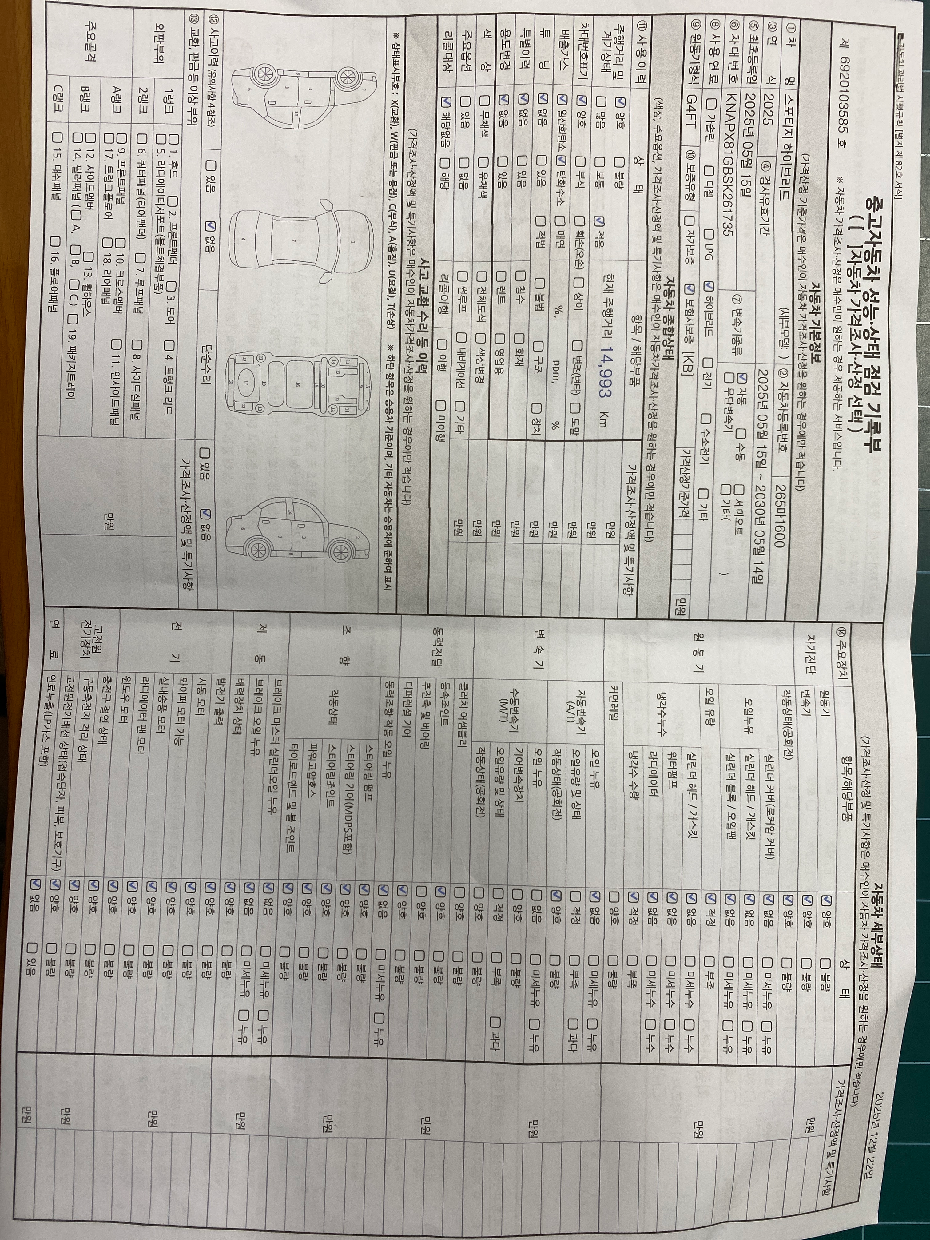 ■ 자동차관리법 시행규칙 [별지 제82호 서식]
중고자동차 성능·상태 점검 기록부
( [ ]자동차가격조사·산정 선택 )
제 6920103585 호
※ 자동차가격조사·산정은 매수인이 원하는 경우 제공하는 서비스입니다.
자동차 기본정보
(가격산정 기준가격은 매수인이 자동차가격조사·산정을 원하는 경우에만 적습니다)
① 차 명 스포티지 하이브리드 (세부모델: ) ② 자동차등록번호 265마1600
③ 연 식 2025 ④ 검사유효기간 2025년 05월 15일 ~ 2030년 05월 14일
⑤ 최초등록일 2025년 05월 15일 ⑦ 변속기종류 ☑ 자동 □ 수동 □ 세미오토
□ 무단변속기 □ 기타( )
⑥ 차대번호 KNAPX81GBSK261735
⑧ 사용연료 □ 가솔린 □ 디젤 □ LPG ☑ 하이브리드 □ 전기 □ 수소전기 □ 기타
⑨ 원동기형식 G4FT ⑩ 보증유형 □ 자가보증 ☑ 보험사보증 [KB] 가격산정기준가격 만원
자동차 종합상태
(색상, 주요옵션, 가격조사·산정액 및 특기사항은 매수인이 자동차가격조사·산정을 원하는 경우에만 적습니다)
⑪ 사용이력 상 태 항목 / 해당부품 가격조사·산정액 및 특기사항
주행거리 및 계기상태 ☑ 양호 □ 불량
□ 많음 □ 보통 ☑ 적음 현재 주행거리 14,993 Km 만원
차대번호표기 ☑ 양호 □ 부식 □ 훼손(오손) □ 상이 □ 변조(변타) □ 도말 만원
배출가스 ☑ 일산화탄소 ☑ 탄화수소 □ 매연 %, ppm, % 만원
튜 닝 ☑ 없음 □ 있음 □ 적법 □ 불법 □ 구조 □ 장치 만원
특별이력 ☑ 없음 □ 있음 □ 침수 □ 화재 만원
용도변경 ☑ 없음 □ 있음 □ 렌트 □ 영업용 만원
색 상 □ 무채색 □ 유채색 □ 전체도색 □ 색상변경 만원
주요옵션 □ 있음 □ 없음 □ 썬루프 □ 네비게이션 □ 기타 만원
리콜대상 ☑ 해당없음 □ 해당 리콜이행 □ 이행 □ 미이행
사고 교환 수리 등 이력
(가격조사·산정액 및 특기사항은 매수인이 자동차가격조사·산정을 원하는 경우에만 적습니다)
※ 상태표시부호 : X(교환), W(판금 또는 용접), C(부식), A(흠집), U(요철), T(손상) ※ 하단 항목은 승용차 기준이며, 기타 자동차는 승용차에 준하여 표시
⑫ 사고이력 (유의사항 4 참조) □ 있음 ☑ 없음 단순수리 □ 있음 ☑ 없음
⑬ 교환, 판금 등 이상 부위 가격조사·산정액 및 특기사항
외판부위 1랭크 □ 1. 후드 □ 2. 프론트휀더 □ 3. 도어 □ 4. 트렁크 리드
□ 5. 라디에이터서포트(볼트체결부품)
2랭크 □ 6. 쿼터패널(리어휀더) □ 7. 루프패널 □ 8. 사이드실패널
주요골격 A랭크 □ 9. 프론트패널 □ 10. 크로스멤버 □ 11. 인사이드패널
□ 17. 트렁크플로어 □ 18. 리어패널 만원
B랭크 □ 12. 사이드멤버 □ 13. 휠하우스
□ 14. 필러패널 (□ A, □ B, □ C) □ 19. 패키지트레이
C랭크 □ 15. 대쉬패널 □ 16. 플로어패널
2025년 12월 22일
자동차 세부상태
(가격조사·산정액 및 특기사항은 매수인이 자동차가격조사·산정을 원하는 경우에만 적습니다)
⑭ 주요장치 항목/해당부품 상 태 가격조사·산정액 및 특기사항
자기진단 원동기 ☑ 양호 □ 불량
변속기 ☑ 양호 □ 불량 만원
원 동 기 작동상태(공회전) ☑ 양호 □ 불량
오일누유 실린더 커버(로커암 커버) ☑ 없음 □ 미세누유 □ 누유
실린더 헤드 / 개스킷 ☑ 없음 □ 미세누유 □ 누유
실린더 블록 / 오일팬 ☑ 없음 □ 미세누유 □ 누유
오일 유량 ☑ 적정 □ 부족
냉각수누수 실린더 헤드 / 개스킷 ☑ 없음 □ 미세누수 □ 누수 만원
워터펌프 ☑ 없음 □ 미세누수 □ 누수
라디에이터 ☑ 없음 □ 미세누수 □ 누수
냉각수 수량 ☑ 적정 □ 부족
커먼레일 □ 양호 □ 불량
변 속 기 자동변속기 (A/T) 오일 누유 ☑ 없음 □ 미세누유 □ 누유
오일유량 및 상태 □ 적정 □ 부족 □ 과다
작동상태(공회전) ☑ 양호 □ 불량
수동변속기 (M/T) 오일 누유 □ 없음 □ 미세누유 □ 누유 만원
기어변속장치 □ 양호 □ 불량
오일유량 및 상태 □ 적정 □ 부족 □ 과다
작동상태(공회전) □ 양호 □ 불량
동력전달 클러치 어셈블리 □ 양호 □ 불량
등속조인트 ☑ 양호 □ 불량
추진축 및 베어링 □ 양호 □ 불량 만원
디퍼렌셜 기어 ☑ 양호 □ 불량
조 향 동력조향 작동 오일 누유 ☑ 없음 □ 미세누유 □ 누유
작동상태 스티어링 펌프 ☑ 양호 □ 불량
스티어링 기어(MDPS포함) ☑ 양호 □ 불량
스티어링조인트 ☑ 양호 □ 불량 만원
파워고압호스 ☑ 양호 □ 불량
타이로드엔드 및 볼 조인트 ☑ 양호 □ 불량
제 동 브레이크 마스터 실린더오일 누유 ☑ 없음 □ 미세누유 □ 누유
브레이크 오일 누유 ☑ 없음 □ 미세누유 □ 누유 만원
배력장치 상태 ☑ 양호 □ 불량
전 기 발전기 출력 ☑ 양호 □ 불량
시동 모터 ☑ 양호 □ 불량
와이퍼 모터 기능 ☑ 양호 □ 불량
실내송풍 모터 ☑ 양호 □ 불량 만원
라디에이터 팬 모터 ☑ 양호 □ 불량
윈도우 모터 ☑ 양호 □ 불량
고전원 전기장치 충전구 절연 상태 ☑ 양호 □ 불량
구동축전지 격리 상태 ☑ 양호 □ 불량 만원
고전원전기배선 상태(접속단자, 피복, 보호기구) ☑ 양호 □ 불량
연 료 연료누출(LP가스 포함) ☑ 없음 □ 있음 만원